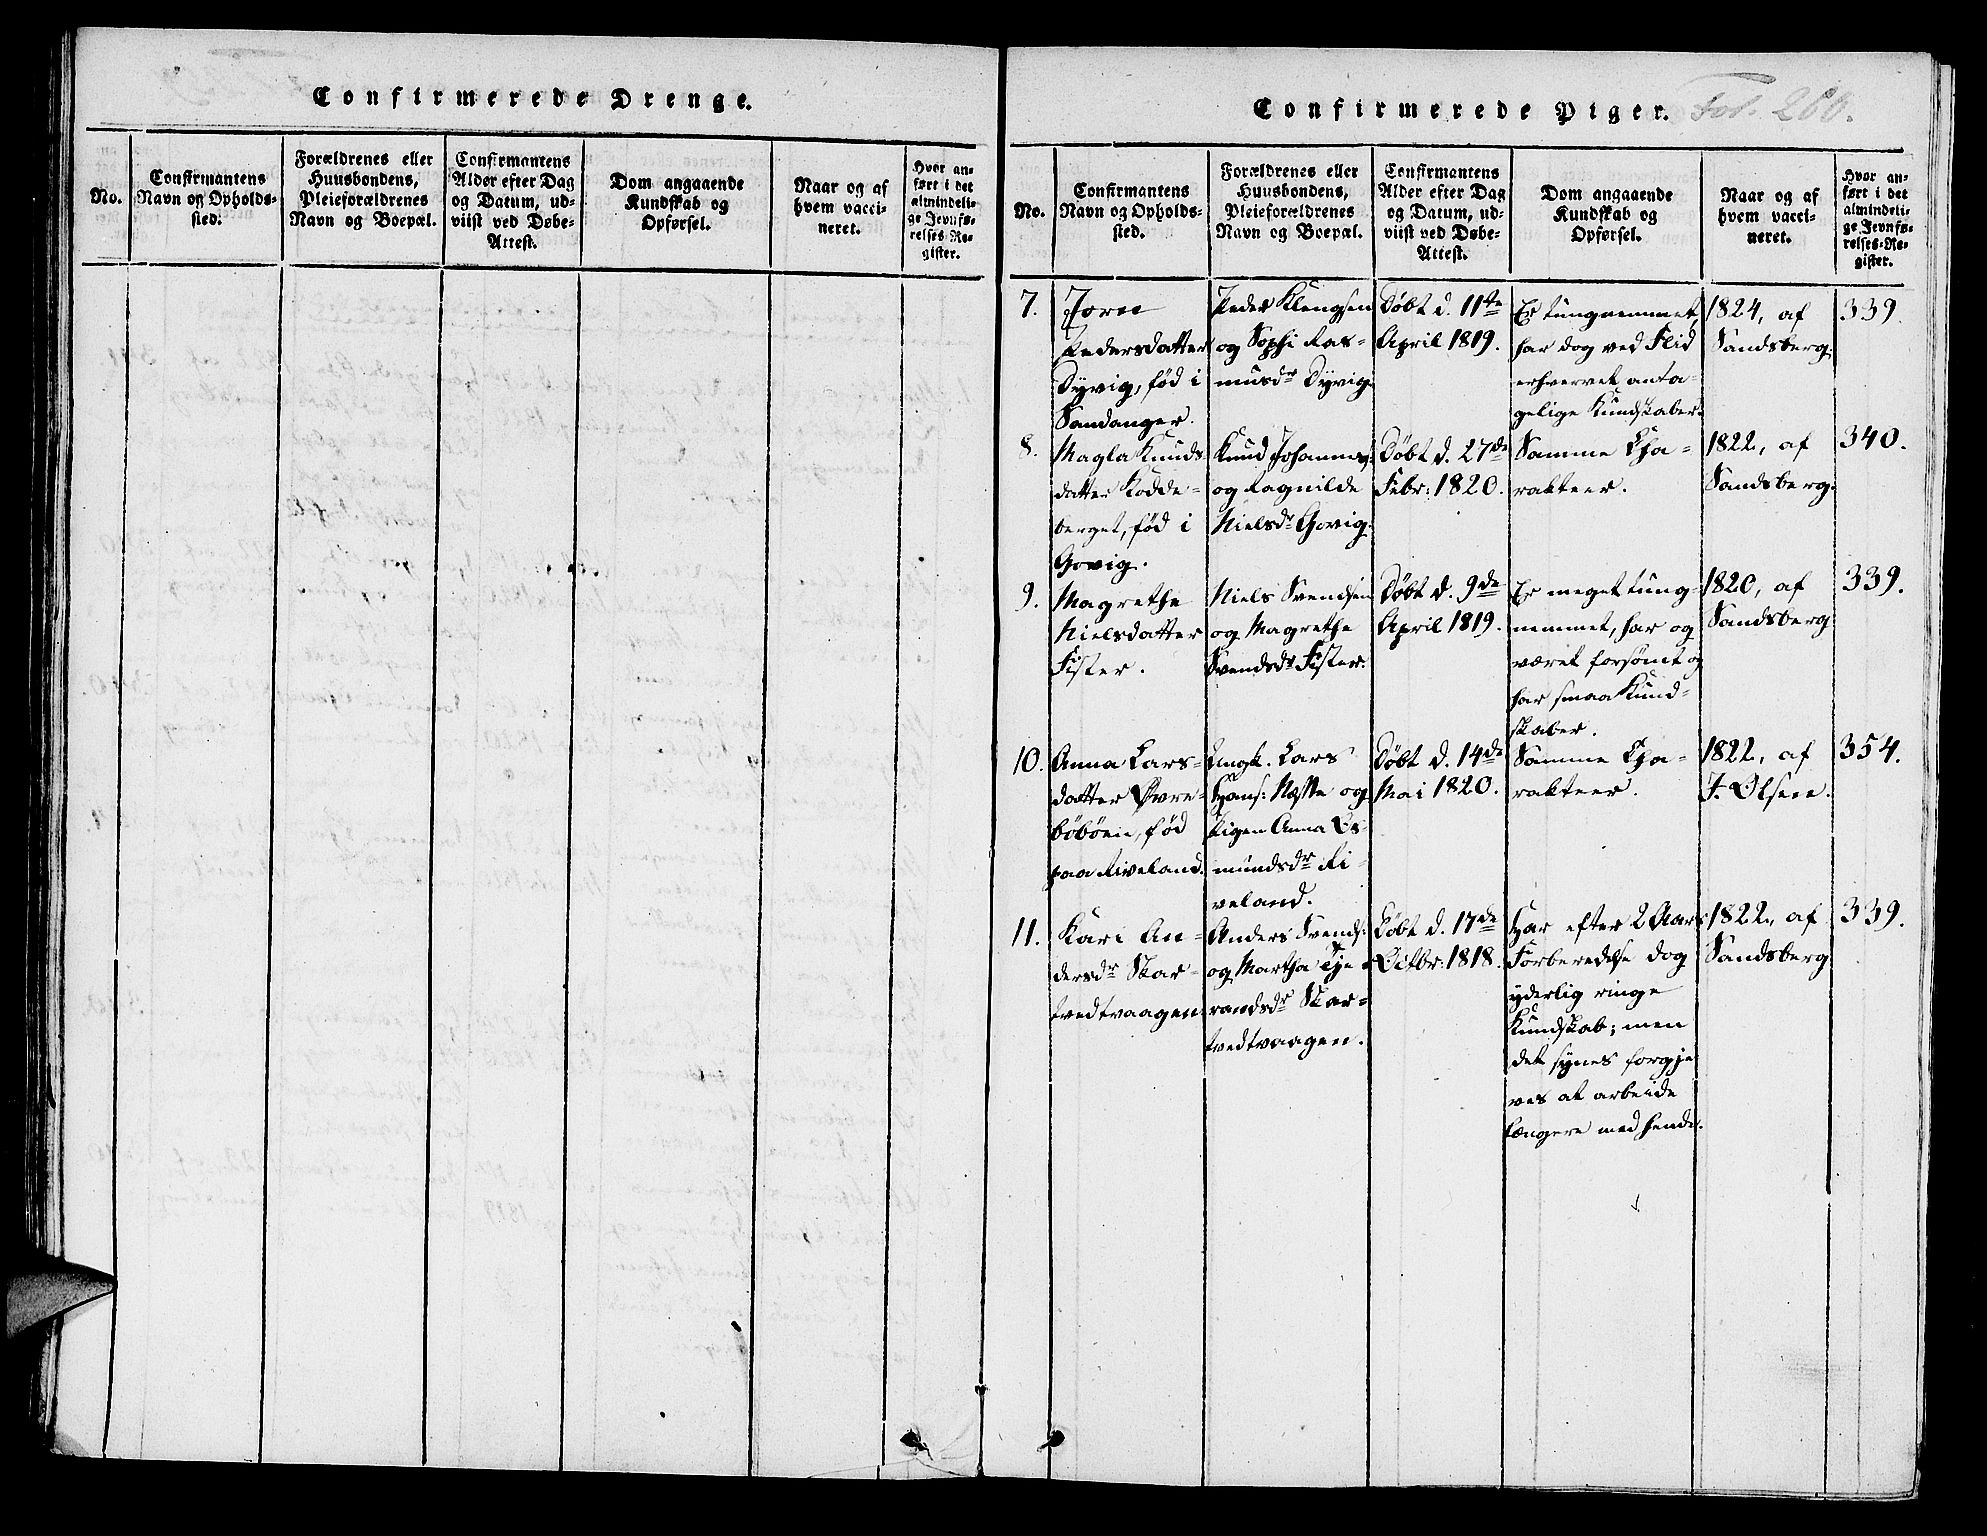 Confirmerede Drenge.
No.
Confirmantens
Navn og Opholds-
sted.
Forældrenes eller
Huusbondens,
Pleieforældrenes
Navn og Boepæl.
Confirmantens
Alder efter Dag
og Datum, ud-
viist ved Døbe-
Attest.
Dom angaaende
Kundskab og
Opførsel.
Naar og af
hvem vacci-
neret.
Hvor an-
ført i det
almindeli-
ge Jevnfø-
relses-Re-
gister.
Confirmerede Piger.
Fol. 260.
No.
Confirmantens
Navn og Opholds-
sted.
Forældrenes eller
Huusbondens,
Pleieforældrenes
Navn og Boepæl.
Confirmantens
Alder efter Dag
og Datum, ud-
viist ved Døbe-
Attest.
Dom angaaende
Kundskab og
Opførsel.
Naar og af
hvem vacci-
neret.
Hvor an-
ført i det
almindeli-
ge Jevnfø-
relses-Re-
gister.
7.
Joree
Pedersdatter
Dyvig, fød i
Sandanger.
Peder Klengsen
og Sophi Ras-
musdr Dyvig
Døbt d. 11te
April 1819.
Er tungnemmet,
har dog ved Flid
erhvervet anta-
gelige Kundskaber.
1824, af
Sandsberg.
339.
8.
Magla Knuds
datter Kodde-
berget, fød i
Govig.
Knud Johannes.
og Ragnilde
Nielsdr Govig.
Døbt d. 27de
Febr: 1820.
Samme Cha-
rakteer.
1822, af
Sandsberg.
340.
9.
Magrethe
Nielsdatter
Fister.
Niels Svendsen
og Magrethe
Svendsdr Fister.
Døbt d. 9de
April 1819.
Er meget tung-
nemmet, har og
været forsømt og
har smaa Kund-
skaber.
1820, af
Sandsberg
339.
10.
Anna Lars-
datter Øvre-
bøbøen, fød
paa Riveland.
Ungk. Lars
Hans: Næsse og
Pigen Anna Os-
mundsdr Ri-
veland.
Døbt d. 14de
Mai 1820.
Samme Cha-
rakteer.
1822, af
J. Olsen.
354.
11.
Kari An-
dersdr Skar-
tvedtvaagen
Anders Svends:
og Martha Tje-
randsdr Skar-
tvedtvaagen.
Døbt d. 17de
Octbr: 1818.
Har efter 2 Aars
Forberedelse dog
yderlig ringe
Kundskab; men
det synes forgje
ves at arbeide
længere med hende.
1822, af
Sandsberg
339.